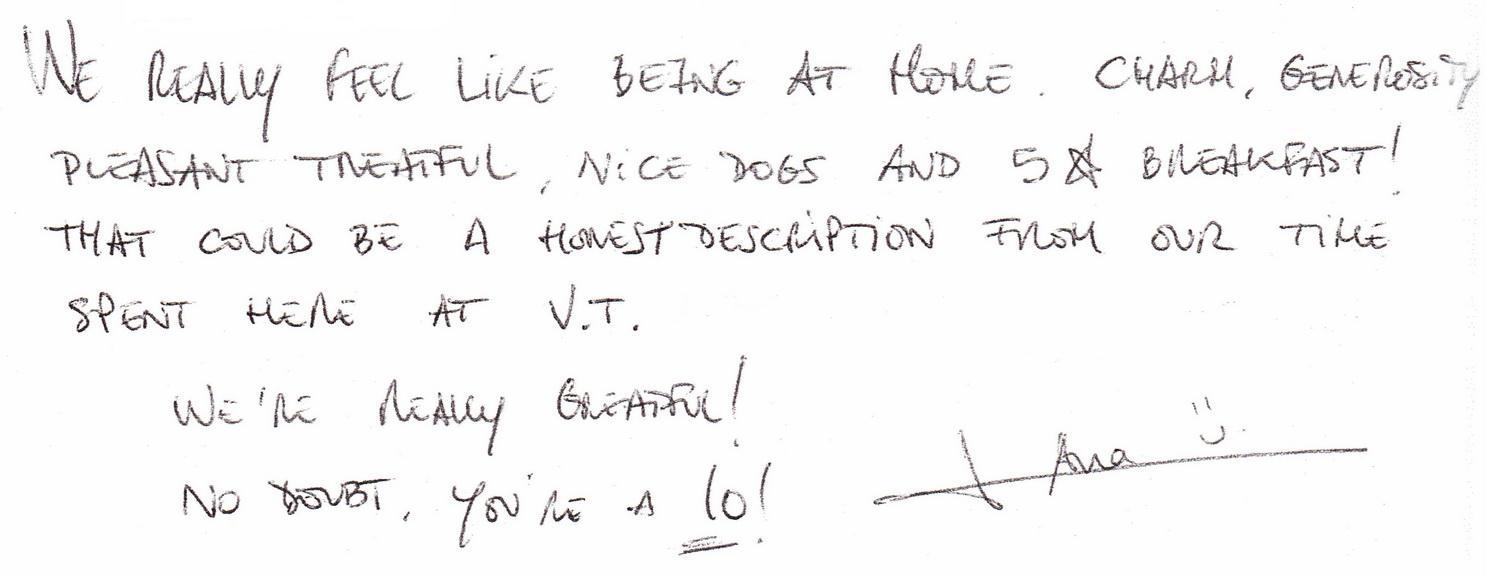 WE REALLY FEEL LIKE BEING AT HOME. CHARM, GENEROSITY
PLEASANT TREATFUL, NICE DOGS AND 5☆ BREAKFAST!
THAT COULD BE A HONEST DESCRIPTION FROM OUR TIME
SPENT HERE AT V.T.
WE'RE REALLY GREATFUL!
NO DOUBT, YOU'RE A 10!
Ana :)